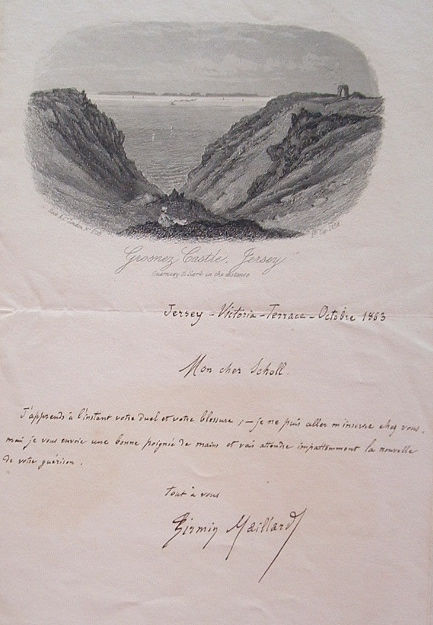 Gronez Castle, Jersey
Guernsey & Sark in the distance
Jersey - Victoria - Terrace - Octobre 1863
Mon cher Scholl.
J'apprends à l'instant votre duel et votre blessure ; - je ne puis aller m'inscrire chez vous,
mais je vous envoie une bonne poignée de mains et vais attendre impatiemment la nouvelle
de votre guérison.
Tout à vous
Firmin Maillard